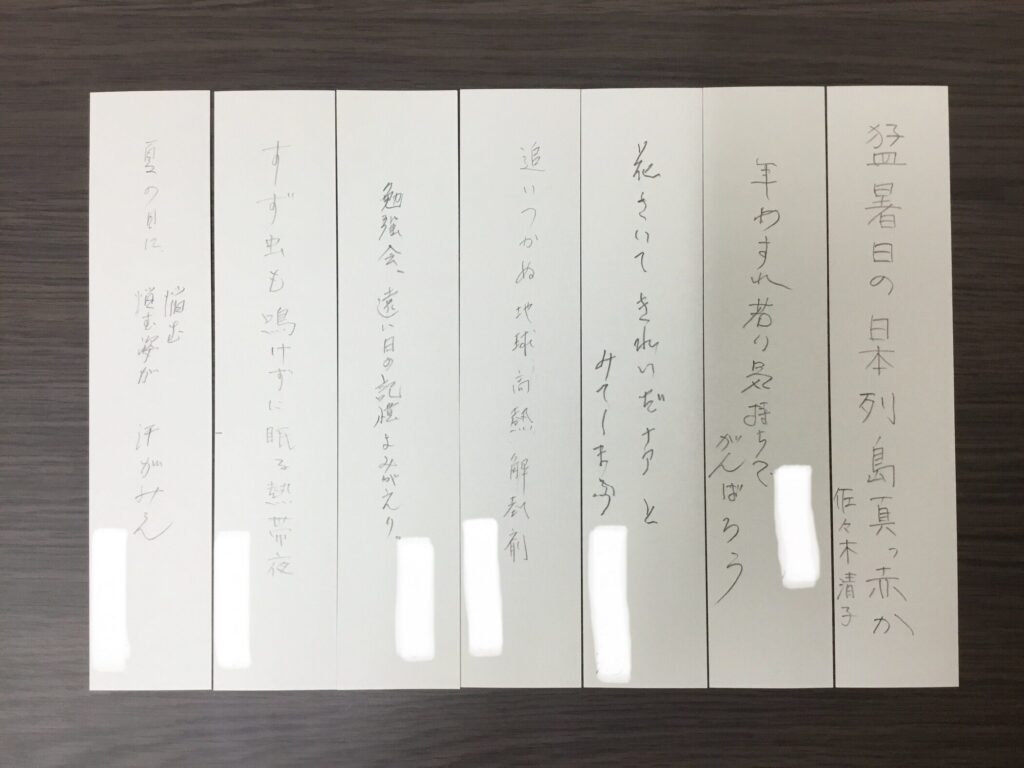 猛暑日の日本列島真っ赤か
佐々木清子
年わすれ若い気持ちで
がんばろう
花さいてきれいだナアと
みてしまふ
追いつかぬ地球高熱解熱剤
勉強会、遠い日の記憶よみがえり。
すず虫も鳴けずに眠る熱帯夜
夏の日に、
悩む姿が 汗がみえ